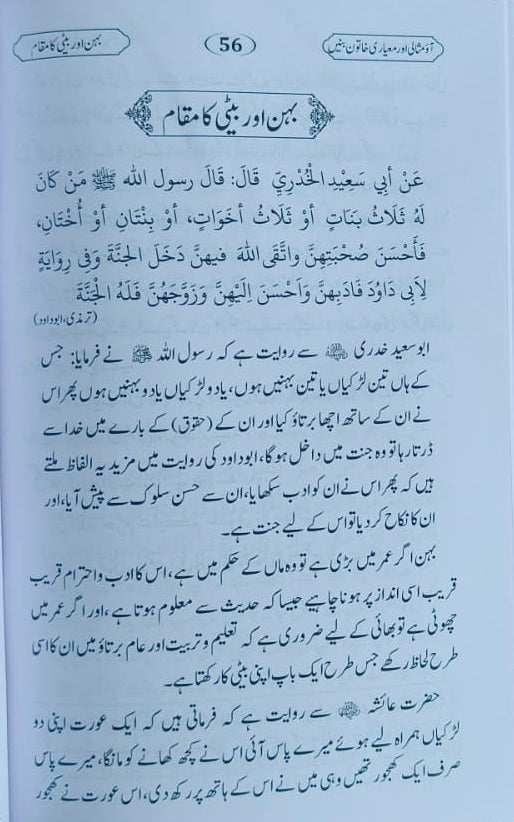 آؤ مثالی اور معیاری خاتون بنیں
56
بہن اور بیٹی کا مقام
بہن اور بیٹی کا مقام
عَنْ أَبي سَعِيْدِ الْخُدْرِيِّ قَالَ: قَالَ رسول الله ﷺ مَنْ كَانَ
لَهُ ثَلَاثُ بَنَاتٍ أوْ ثَلَاثُ أخَوَاتٍ، أوْ بِنْتَانِ أوْ أُخْتَانِ،
فَأَحْسَنَ صُحْبَتِهِنَّ واتَّقَى اللهَ فيهنَّ دَخَلَ الجنَّةَ وَفِى رِوَايَةٍ
لِاَبِى دَاوُدَ فَادَبهِنَّ وَاَحْسَنَ اِلَيْهِنَّ وَزَوَّجَهُنَّ فَلَهُ الْجَنَّةَ
(ترمذی، ابوداود)
ابوسعید خدری ﷛ سے روایت ہے کہ رسول اللہ ﷺ نے فرمایا: جس
کے ہاں تین لڑکیاں یا تین بہنیں ہوں، یا دو لڑکیاں یا دو بہنیں ہوں پھر اس
نے ان کے ساتھ اچھا برتاؤ کیا اور ان کے (حقوق) کے بارے میں خدا سے
ڈرتا رہا تو وہ جنت میں داخل ہو گا، ابوداود کی روایت میں مزید یہ الفاظ ملتے
ہیں کہ پھر اس نے ان کو ادب سکھایا، ان سے حسن سلوک سے پیش آیا، اور
ان کا نکاح کر دیا تو اس کے لیے جنت ہے۔
بہن اگر عمر میں بڑی ہے تو وہ ماں کے حکم میں ہے، اس کا ادب و احترام قریب
قریب اسی انداز پر ہونا چاہیے جیسا کہ حدیث سے معلوم ہوتا ہے، اور اگر عمر میں
چھوٹی ہے تو بھائی کے لیے ضروری ہے کہ تعلیم و تربیت اور عام برتاؤ میں ان کا اسی
طرح لحاظ رکھے جس طرح ایک باپ اپنی بیٹی کا رکھتا ہے۔
حضرت عائشہ سے روایت ہے کہ فرماتی ہیں کہ ایک عورت اپنی دو
لڑکیاں ہمراہ لیے ہوئے میرے پاس آئی اس نے کچھ کھانے کو مانگا، میرے پاس
صرف ایک کھجور تھیں وہی میں نے اس کے ہاتھ پر رکھ دی، اس عورت نے کھجور